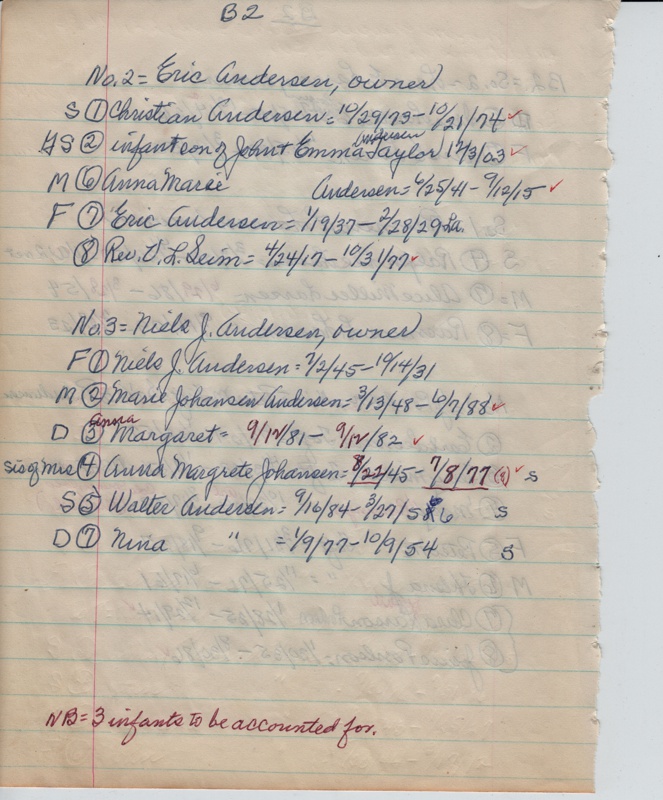 B2
No. 2 = Eric Andersen, owner
S ① Christian Andersen = 10/29/73 - 10/21/74 ✓
GS ② infant son of John + Emma Andersen Taylor 12/3/03 ✓
M ⑥ Anna Marie Andersen = 6/25/41 - 9/12/15 ✓
F ⑦ Eric Andersen = 1/19/37 - 2/28/29 La.
⑧ Rev. V. L. Seim = 4/24/17 - 10/31/77 ✓
No. 3 = Niels J. Andersen, owner
F ① Niels J. Andersen = 7/2/45 - 10/14/31
M ② Marie Johansen Andersen = 3/13/48 - 6/7/88 ✓
D ③ Anna Margaret = 9/12/81 - 9/12/82 ✓
Sis of Mrs ④ Anna Margrete Johansen = 8/22/45 - 7/8/77 (?) ✓ S
S ⑤ Walter Andersen = 9/16/84 - 3/27/56 S
D ⑦ Nina " = 1/9/77 - 10/9/54 S
NB = 3 infants to be accounted for.